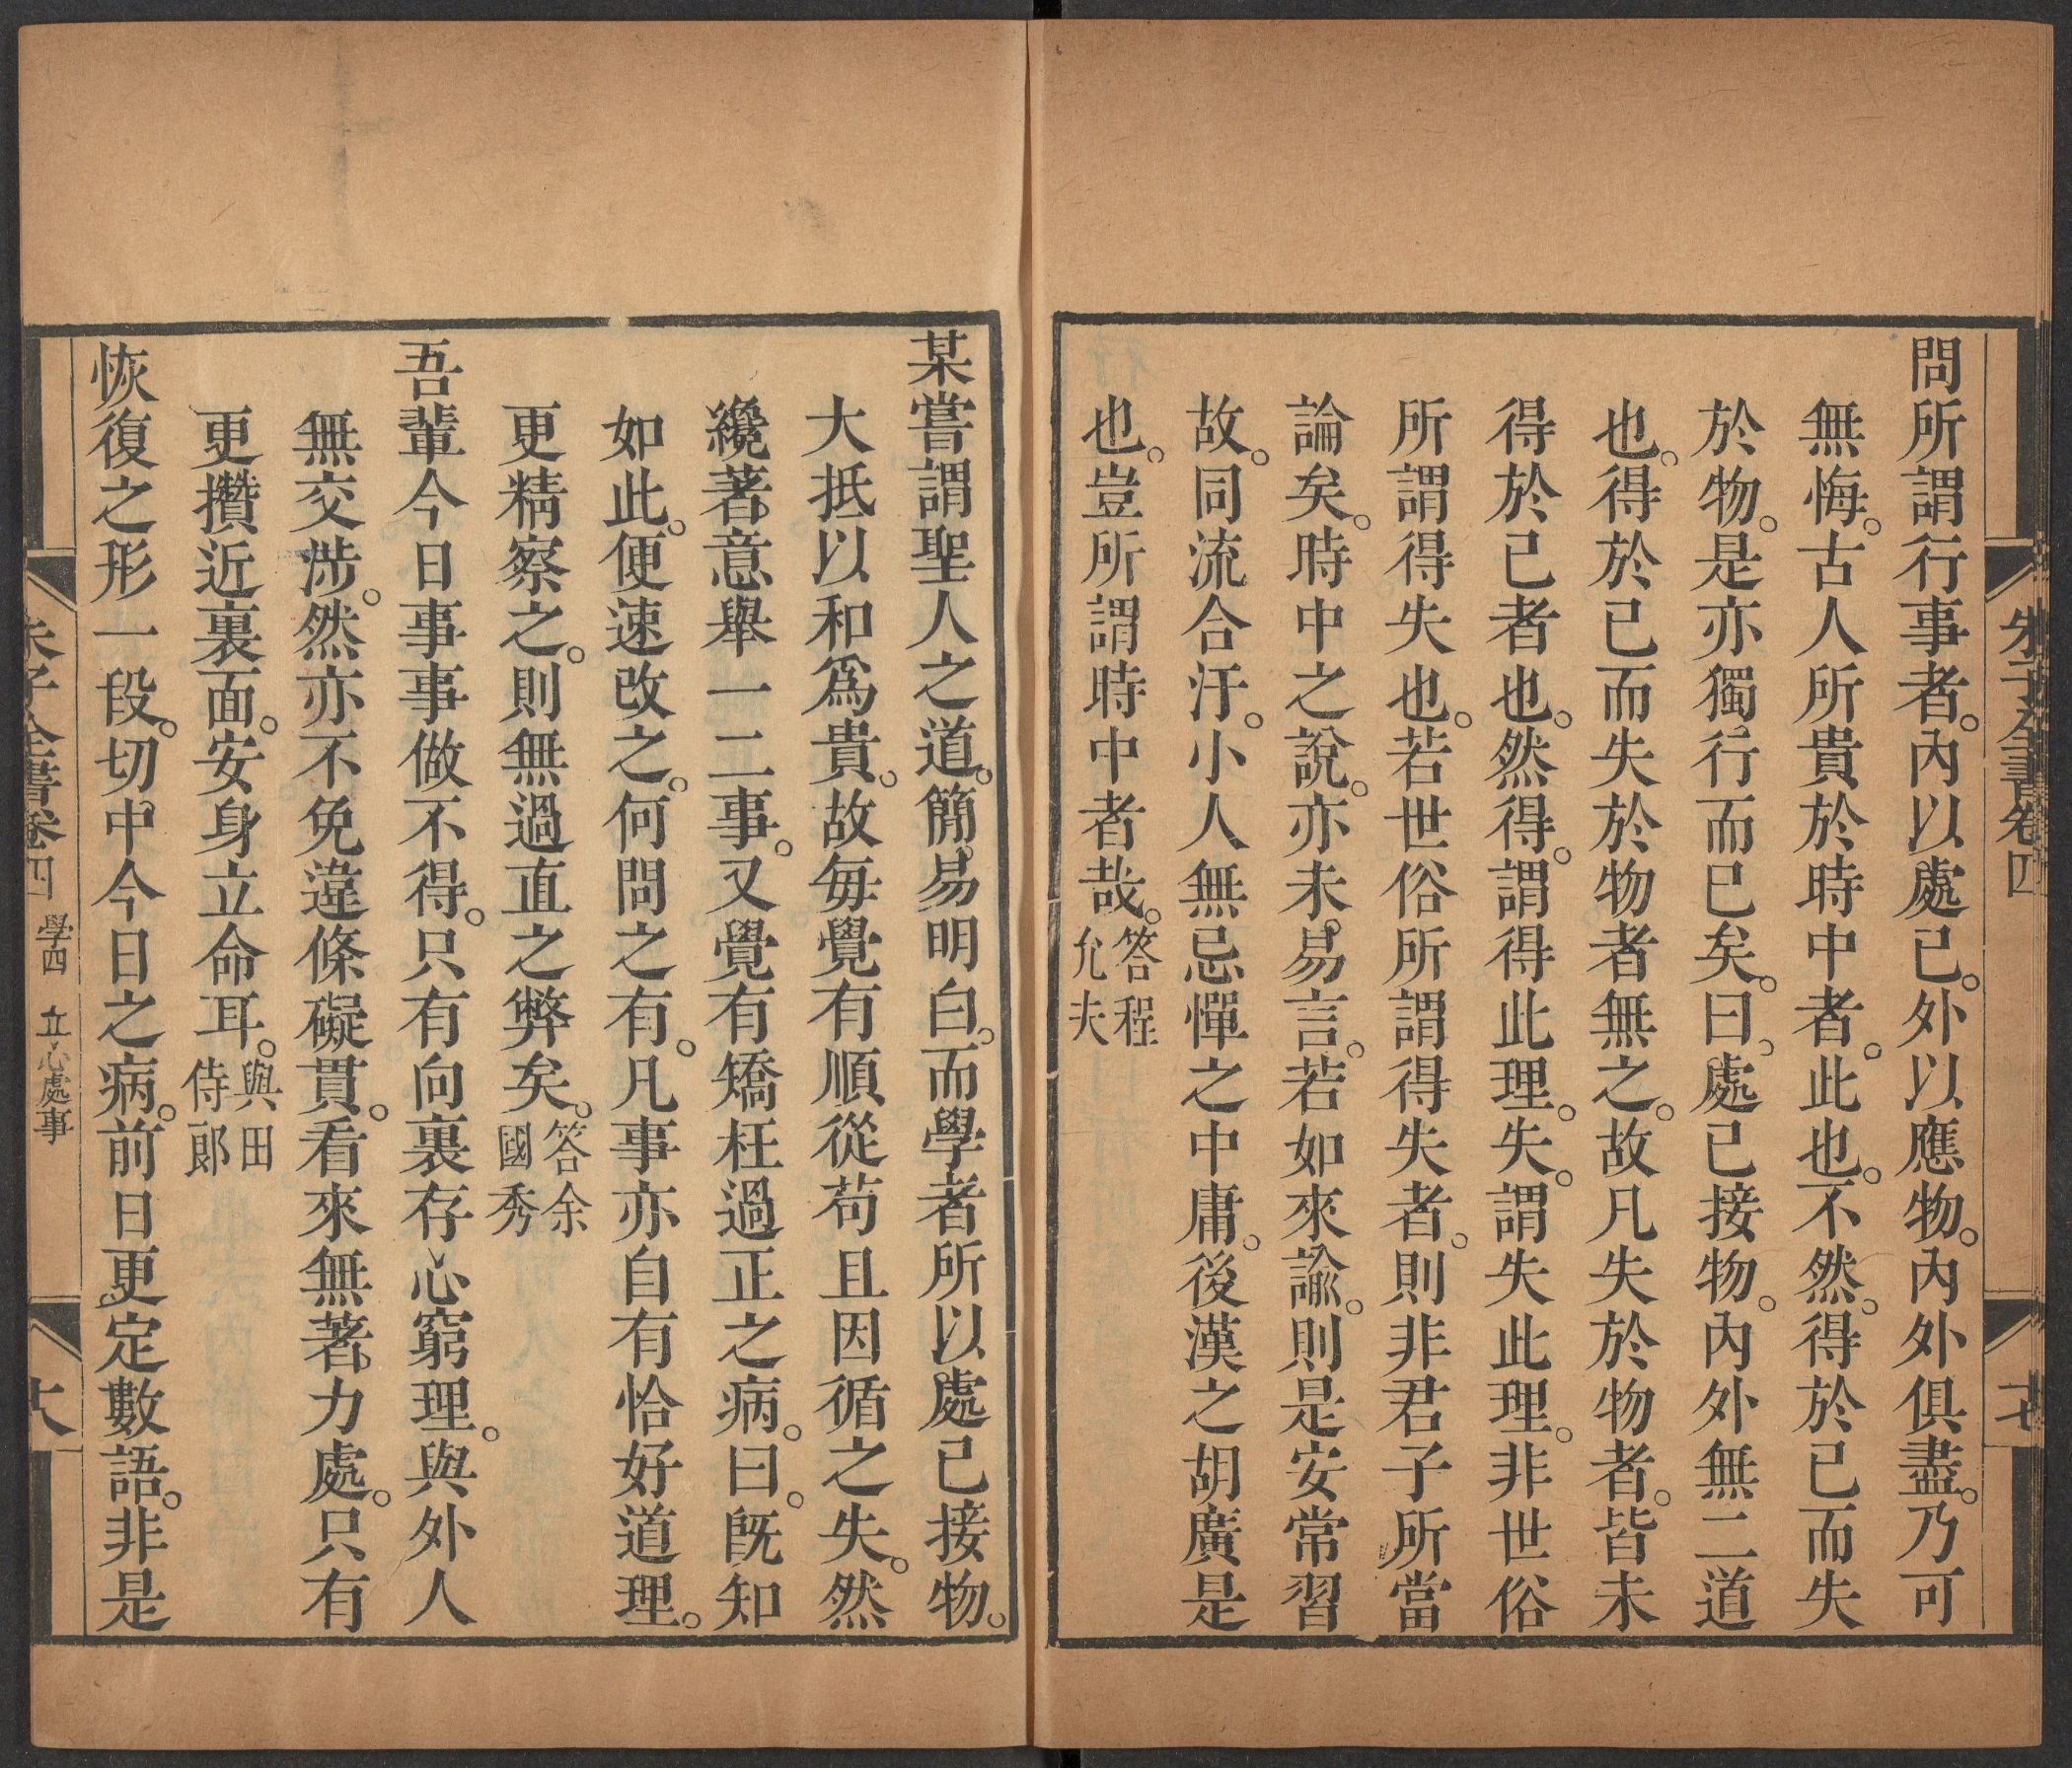 問所謂行事者。內以處己。外以應物。內外俱盡。乃可
無悔。古人所貴於時中者。此也。不然。得於己而失
於物。是亦獨行而已矣。曰。處己接物。內外無二道
也。得於己而失於物者無之。故凡失於物者。皆未
得於己者也。然得。謂得此理。失。謂失此理。非世俗
所謂得失也。若世俗所謂得失者。則非君子所當
論矣。時中之說。亦未易言。若如來諭。則是安常習
故。同流合汙。小人無忌憚之中庸。後漢之胡廣是
也。豈所謂時中者哉。答程允夫
朱子全書卷四
某嘗謂聖人之道。簡易明白。而學者所以處己接物。
大抵以和爲貴。故每覺有順從苟且因循之失。然
纔著意舉一二事。又覺有矯枉過正之病。曰。旣知
如此。便速改之。何問之有。凡事亦自有恰好道理。
更精察之。則無過直之弊矣。答余國秀
吾輩今日事事做不得。只有向裏存心窮理。與外人
無交涉。然亦不免違條礙貫。看來無著力處。只有
更攢近裏面。安身立命耳。與田侍郞
恢復之形一段。切中今日之病。前日更定數語。非是
朱子全書卷四 學四 立心處事 十八